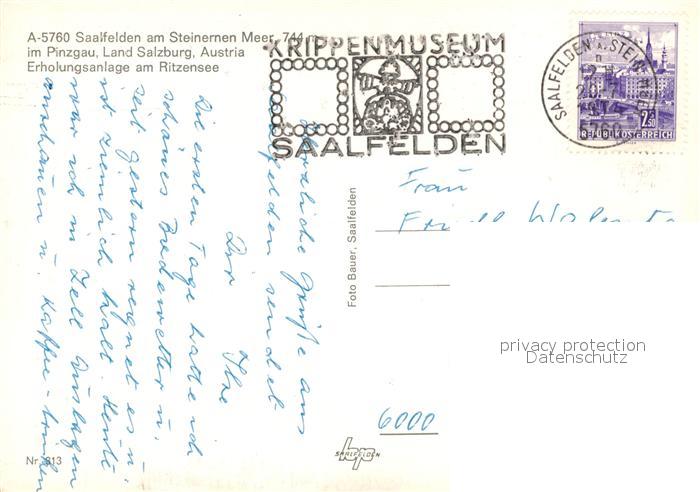 A-5760 Saalfelden am Steinernen Meer, 744 m
im Pinzgau, Land Salzburg, Austria
Erholungsanlage am Ritzensee
KRIPPENMUSEUM
SAALFELDEN
SAALFELDEN A. STEIN
2,50
REPUBLIK ÖSTERREICH
Herzliche Grüße aus
Saalfelden sendet
Die ersten Tage hatte ich
schönes Badewetter u.
seit gestern regnet es u.
ist ziemlich kalt. Heute
war ich in Zell Auslagen
anschauen u. Kaffee-trinken
Foto Bauer, Saalfelden
Frau
6000
privacy protection
Datenschutz
Nr. 313
SAALFELDEN